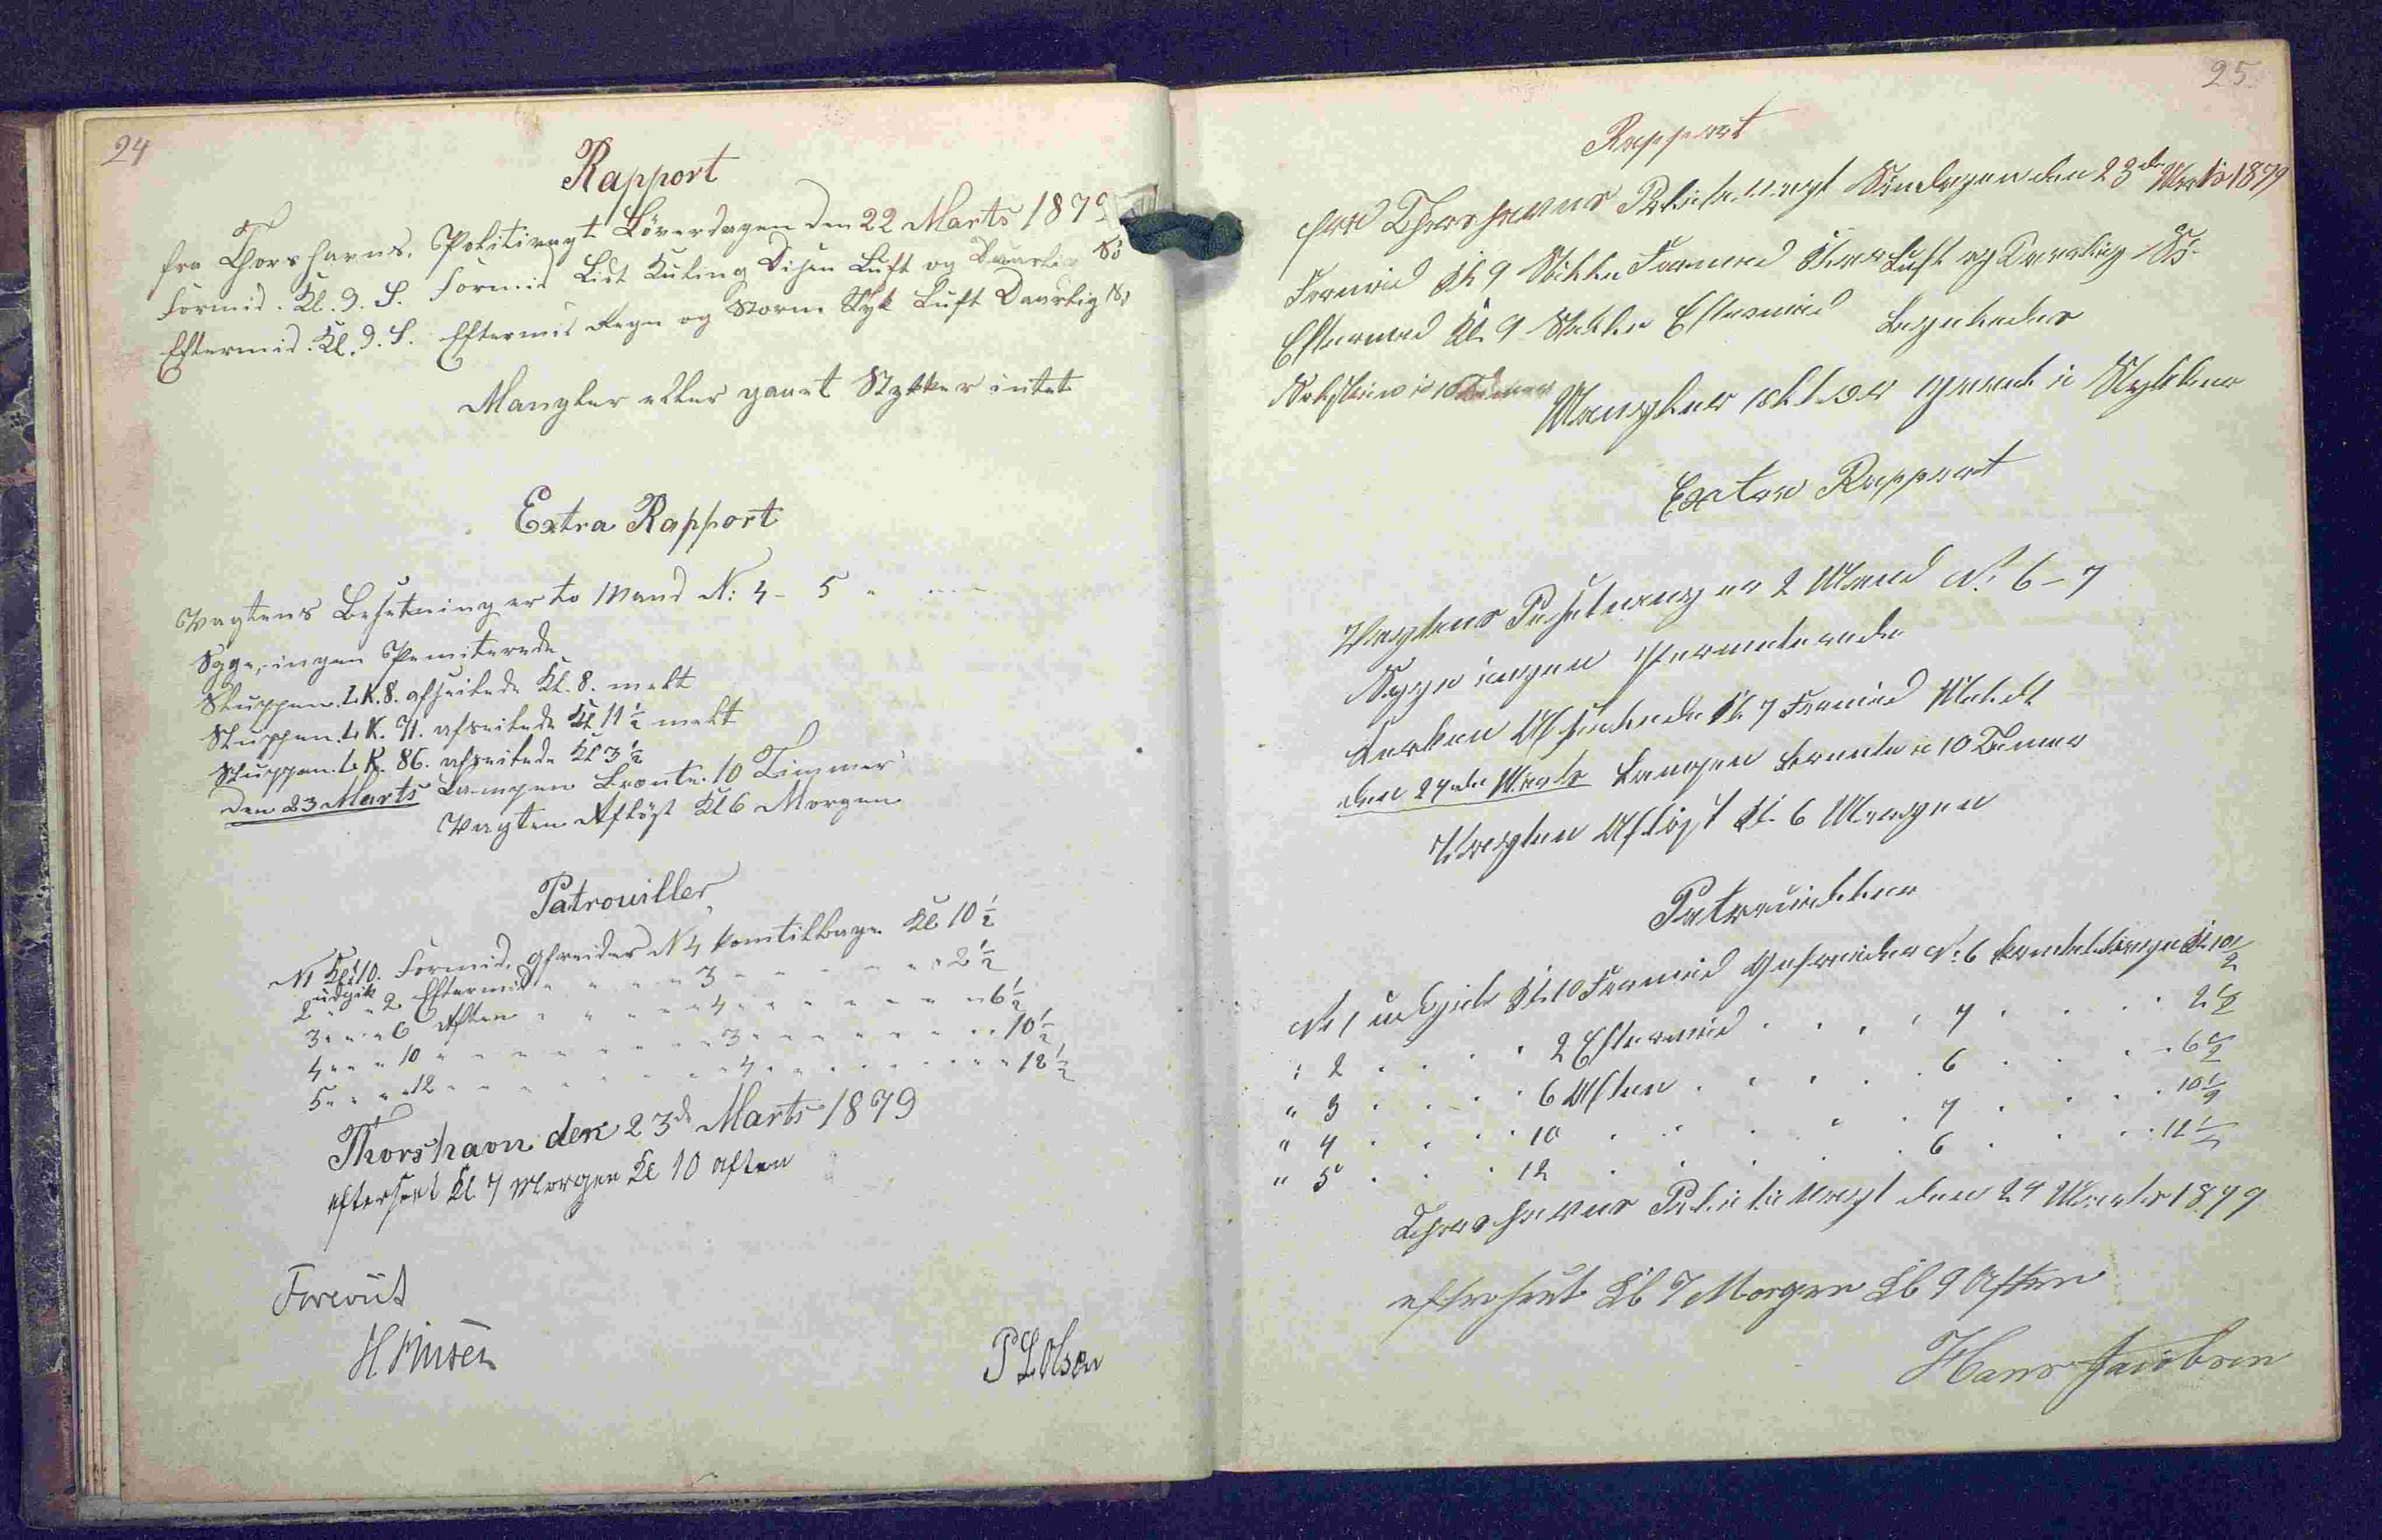 24
Rapport
fra Thorshavns. Politivagt Löverdagen den 22 Marts 1879
Formid. Kl. 9. S. Formid Lidt Kuling Disen Luft og Daarlig Sö
Eftermid. Kl. 9. S. Eftermid Regn og Storm Tyk Luft Daarlig Sö
Mangler eller gaaet Stykker intet
Extra Rapport
Vagtens Besetning er to Mand N: 4 - 5 "
Syge, ingen Permiterede
Sluppen. L.K. 8. afseilede Kl. 8. malt
Sluppen. L.K. 71. afseilede Kl 11 1/2 malt
Sluppen. L.K. 86. afseilede Kl 3 1/2
den 23 Marts Lampen Brænte. 10 Timmer
Vagten Aflöst Kl 6 Morgen
Patrouiller
N1 udgik Kl: 10. Formid. Gefreider N 4 komtilbage Kl 10 1/2
2 " " 2. Eftermid " " " " 3 " " " " " 2 1/2
3 " " " 6 Aften " " " " 4 " " " " " 6 1/2
4 " " " 10 " " " " " " 3 " " " " " 10 1/2
5 " " " 12 " " " " " " 4 " " " " " 12 1/2
Thorshavn den 23de Marts 1879
efterseet Kl. 7 Morgen Kl 10 aften
Foreviist
P L Olsen
25.
Rapport
fra Thorshavns Politivagt Söndagen den 23de Marts 1879
Formid Kl 9 Stille Formid Klar Luft og Daarlig Sö.
Eftermid Kl. 9 Stille Eftermid
i 10 Timer
Mangler eller gaaet i Stykker
Extra Rapport
Vagtens Besetning er 2 Mand No. 6 - 7
Syge ingen Permiterede
Afseilede Kl. 7 Formid
den 24de Marts Lampen brænte i 10 Timer
Vagten Aflöst Kl. 6 Morgen
Patrouiller
No 1 udgik Kl. 10 Formid Gefreider No. 6 komtilbage Kl. 10 1/2
" 2 " " " 2 Eftermid " " " " 7 " " " 2 1/2
" 3 " " " 6 Aften " " " " 6 " " " 6 1/2
" 4 " " " 10 " " " " 7 " " " 10 1/2
" 5 " " " 12 " " " " 6 " " " 12 1/2
Thorshavns Politivagt den 24 Marts 1879
efterseet Kl 7 Morgen Kl 9 Aften
Hans Jacobsen